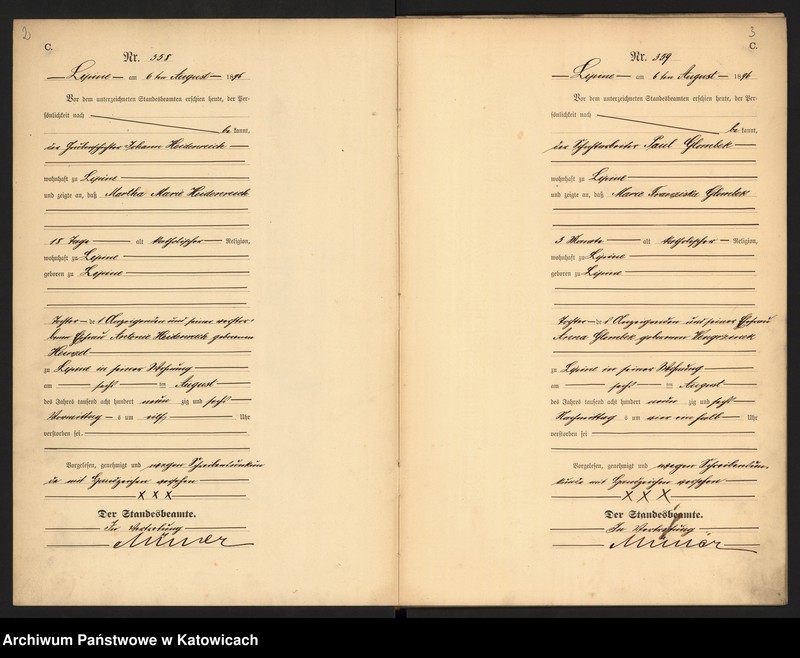 2
C.
Nr. 358
Lipine am 6ten August 1896
Vor dem unterzeichneten Standesbeamten erschien heute, der Per-
sönlichkeit nach
be kannt,
der Johann Heidenreich
wohnhaft zu Lipine
und zeigte an, daß Martha Marie Heidenreich
18 Tage alt katholischer Religion,
wohnhaft zu Lipine
geboren zu Lipine
Tochter de s Anzeigenden und seiner verstor-
benen Ehefrau Antonie Heidenreich geborenen
Henzel
zu Lipine in seiner Wohnung
am sechs ten August
des Jahres tausend acht hundert neun zig und sechs
Vormittag s um elf Uhr
verstorben sei.
Vorgelesen, genehmigt und wegen Schreibensunkun
de mit Handzeichen versehen
X X X
Der Standesbeamte.
In Vertretung
3
C.
Nr. 359
Lipine am 6ten August 1896
Vor dem unterzeichneten Standesbeamten erschien heute, der Per-
sönlichkeit nach
be kannt,
der Paul Glombek
wohnhaft zu Lipine
und zeigte an, daß Marie Franziska Glombek
3 Monate alt katholischer Religion,
wohnhaft zu Lipine
geboren zu Lipine
Tochter de s Anzeigenden und seiner Ehefrau
Anna Glombek geborenen
zu Lipine in seiner Wohnung
am sechs ten August
des Jahres tausend acht hundert neun zig und sechs
Nachmittag s um vier ein halb Uhr
verstorben sei
Vorgelesen, genehmigt und wegen Schreibensun-
kunde mit Handzeichen versehen
X X X
Der Standesbeamte.
In Vertretung
Archiwum Państwowe w Katowicach